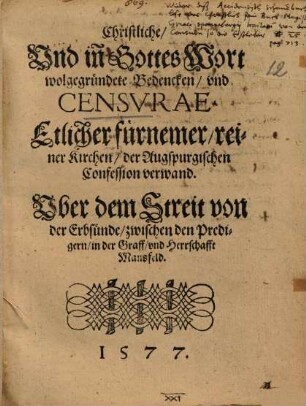 Christliche/
Vnd inn Gottes Wort
wolgegründete Bedencken/ vnd
CENSVRAE.
Etlicher fürnemer/ rei-
ner Kirchen/ der Augspurgischen
Confession verwand.
Vber dem Streit von
der Erbsünde/ zwischen den Predi-
gern/ in der Graff/ vnd Herrschafft
Mansfeld.
1577.
12
XXI